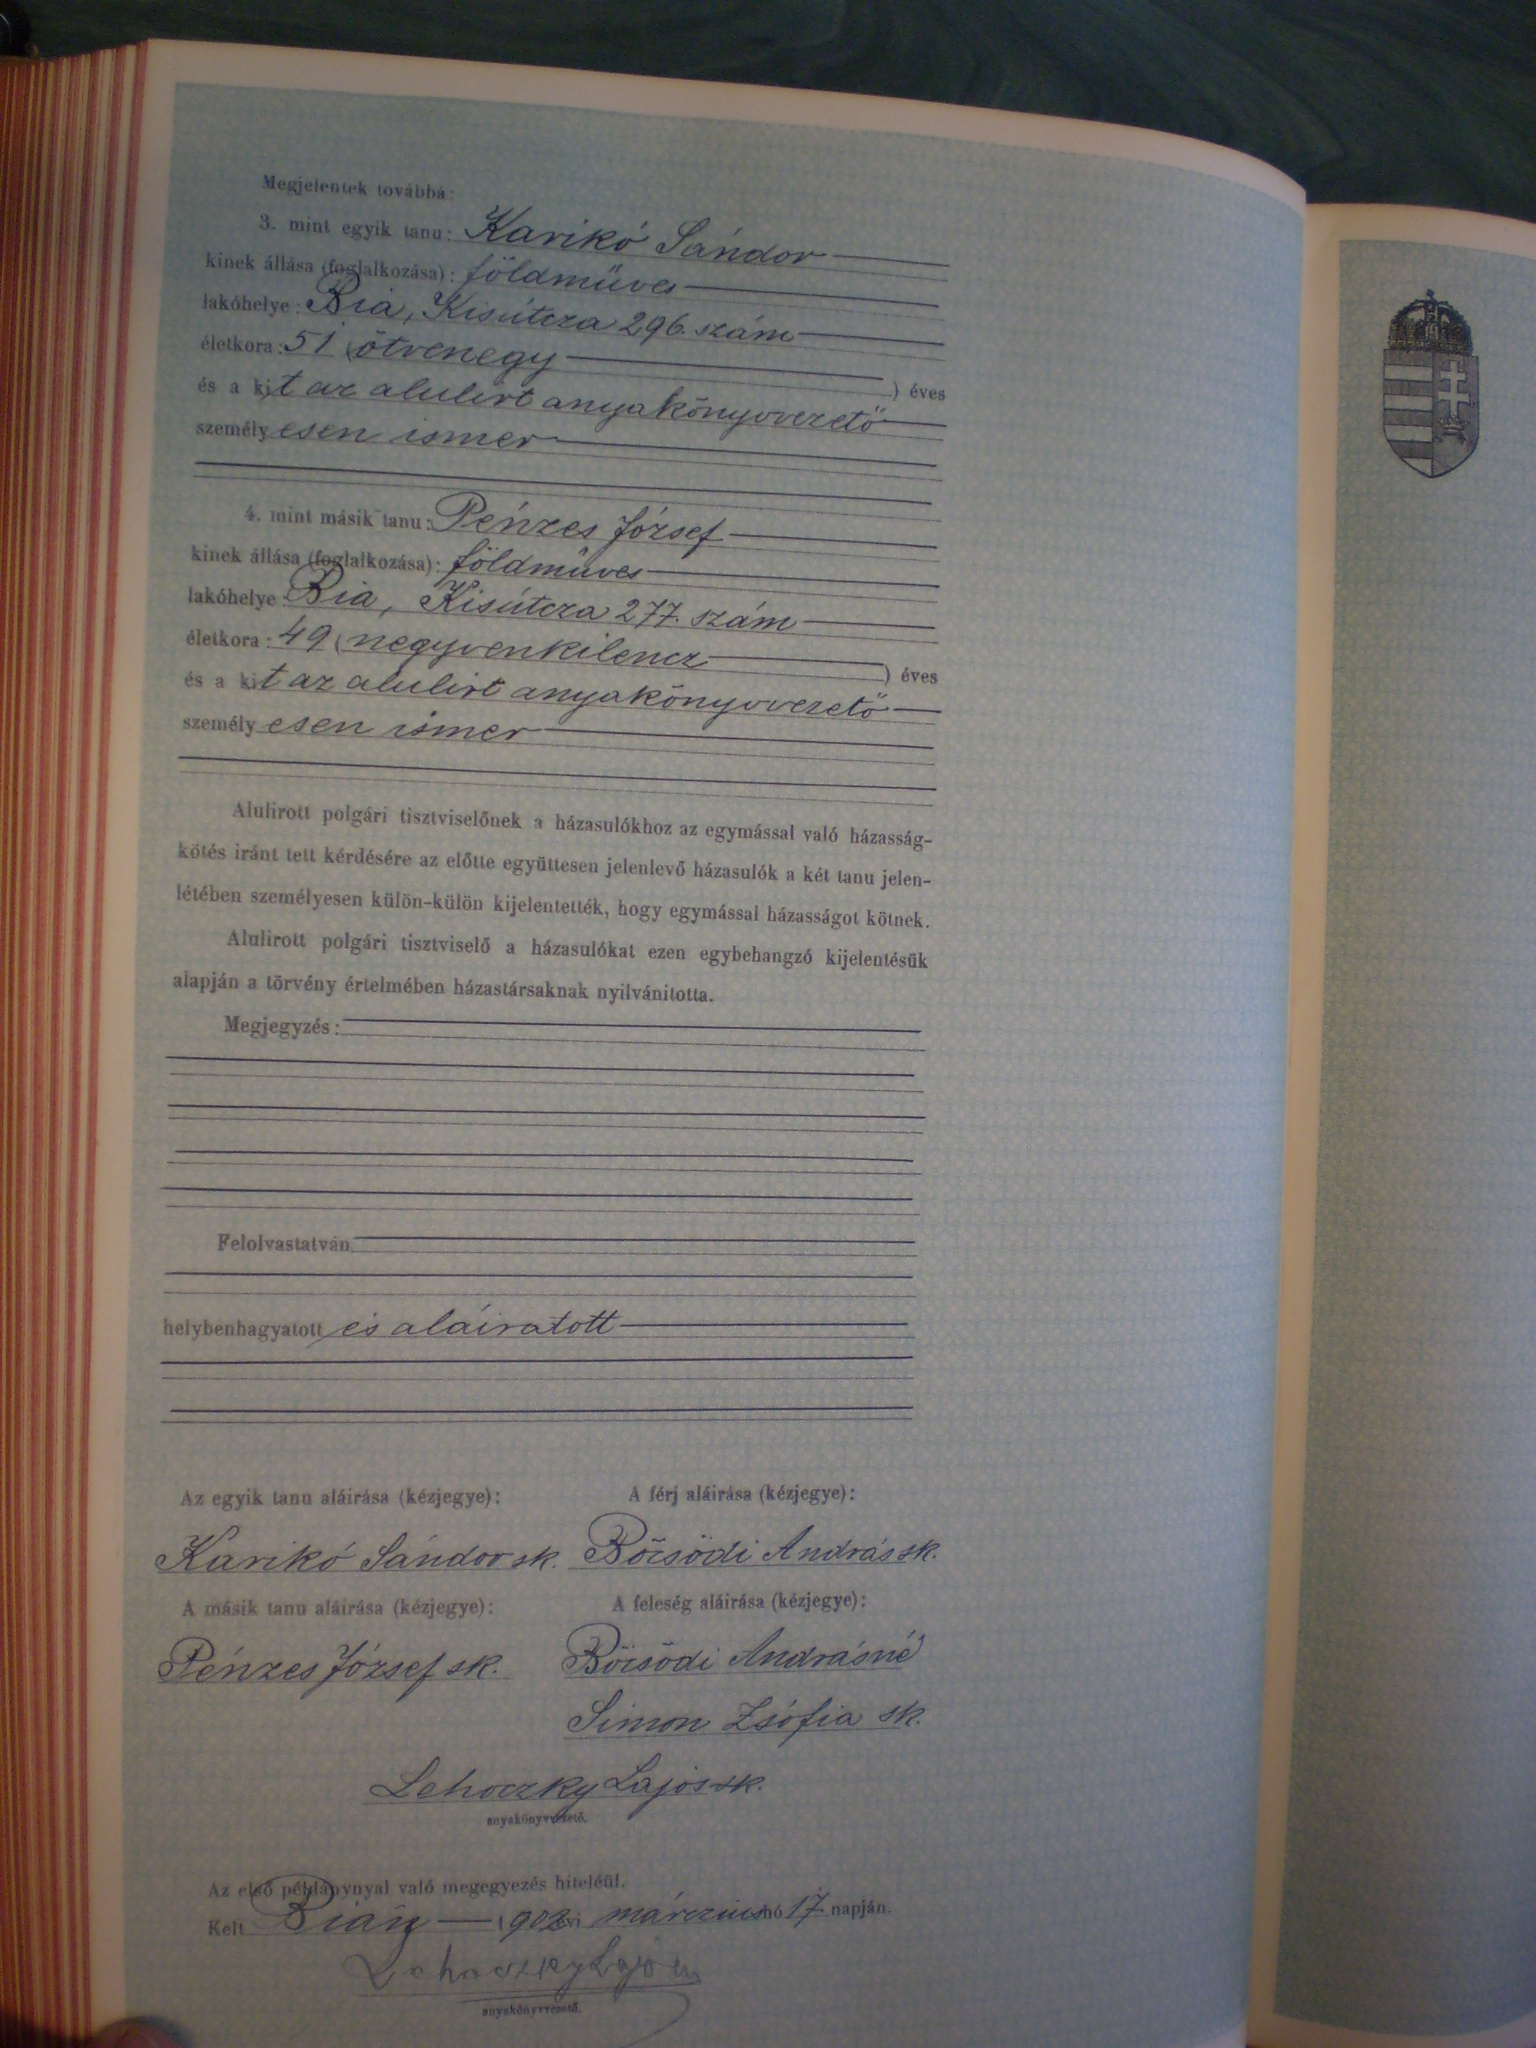 Megjelentek továbbá:
3. mint egyik tanu: Karikó Sándor
kinek állása (foglalkozása): földmüves
lakóhelye: Bia, Kisútcza 296. szám
életkora: 51 (ötvenegy) éves
és a kit az alulirt anyakönyvvezető
személyesen ismer
4. mint másik tanu: Pénzes József
kinek állása (foglalkozása): földmüves
lakóhelye: Bia, Kisútcza 277. szám
életkora: 49 (negyvenkilencz) éves
és a kit az alulirt anyakönyvvezető
személyesen ismer
Alulirott polgári tisztviselőnek a házasulókhoz az egymással való házasság-
kötés iránt tett kérdésére az előtte együttesen jelenlevő házasulók a két tanu jelen-
létében személyesen külön-külön kijelentették, hogy egymással házasságot kötnek.
Alulirott polgári tisztviselő a házasulókat ezen egybehangzó kijelentésük
alapján a törvény értelmében házastársaknak nyilvánitotta.
Megjegyzés:
Felolvastatván
helybenhagyatott és aláiratott
Az egyik tanu aláirása (kézjegye): A férj aláirása (kézjegye):
Karikó Sándor sk. Böcsödi András sk.
A másik tanu aláirása (kézjegye): A feleség aláirása (kézjegye):
Pénzes József sk. Böcsödi Andrásné
Simon Zsófia sk.
Lehoczky Lajos sk.
anyakönyvvezető.
Az első példánynyal való megegyezés hiteléül.
Kelt Bián 1902 évi márczius hó 17. napján.
Lehoczky Lajos
anyakönyvvezető.